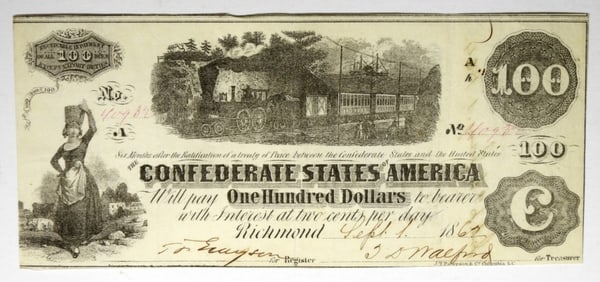 RECEIVABLE IN PAYMENT
OF ALL 100 DUES
EXCEPT EXPORT DUTIES
No.
A
A
100
No
100
Six Months after the Ratification of a treaty of Peace between the Confederate States and the United States
THE CONFEDERATE STATES OF AMERICA
Will pay One Hundred Dollars to bearer
with Interest at two cents per day
Richmond Sept. 1. 1862
C
for Register
for Treasurer